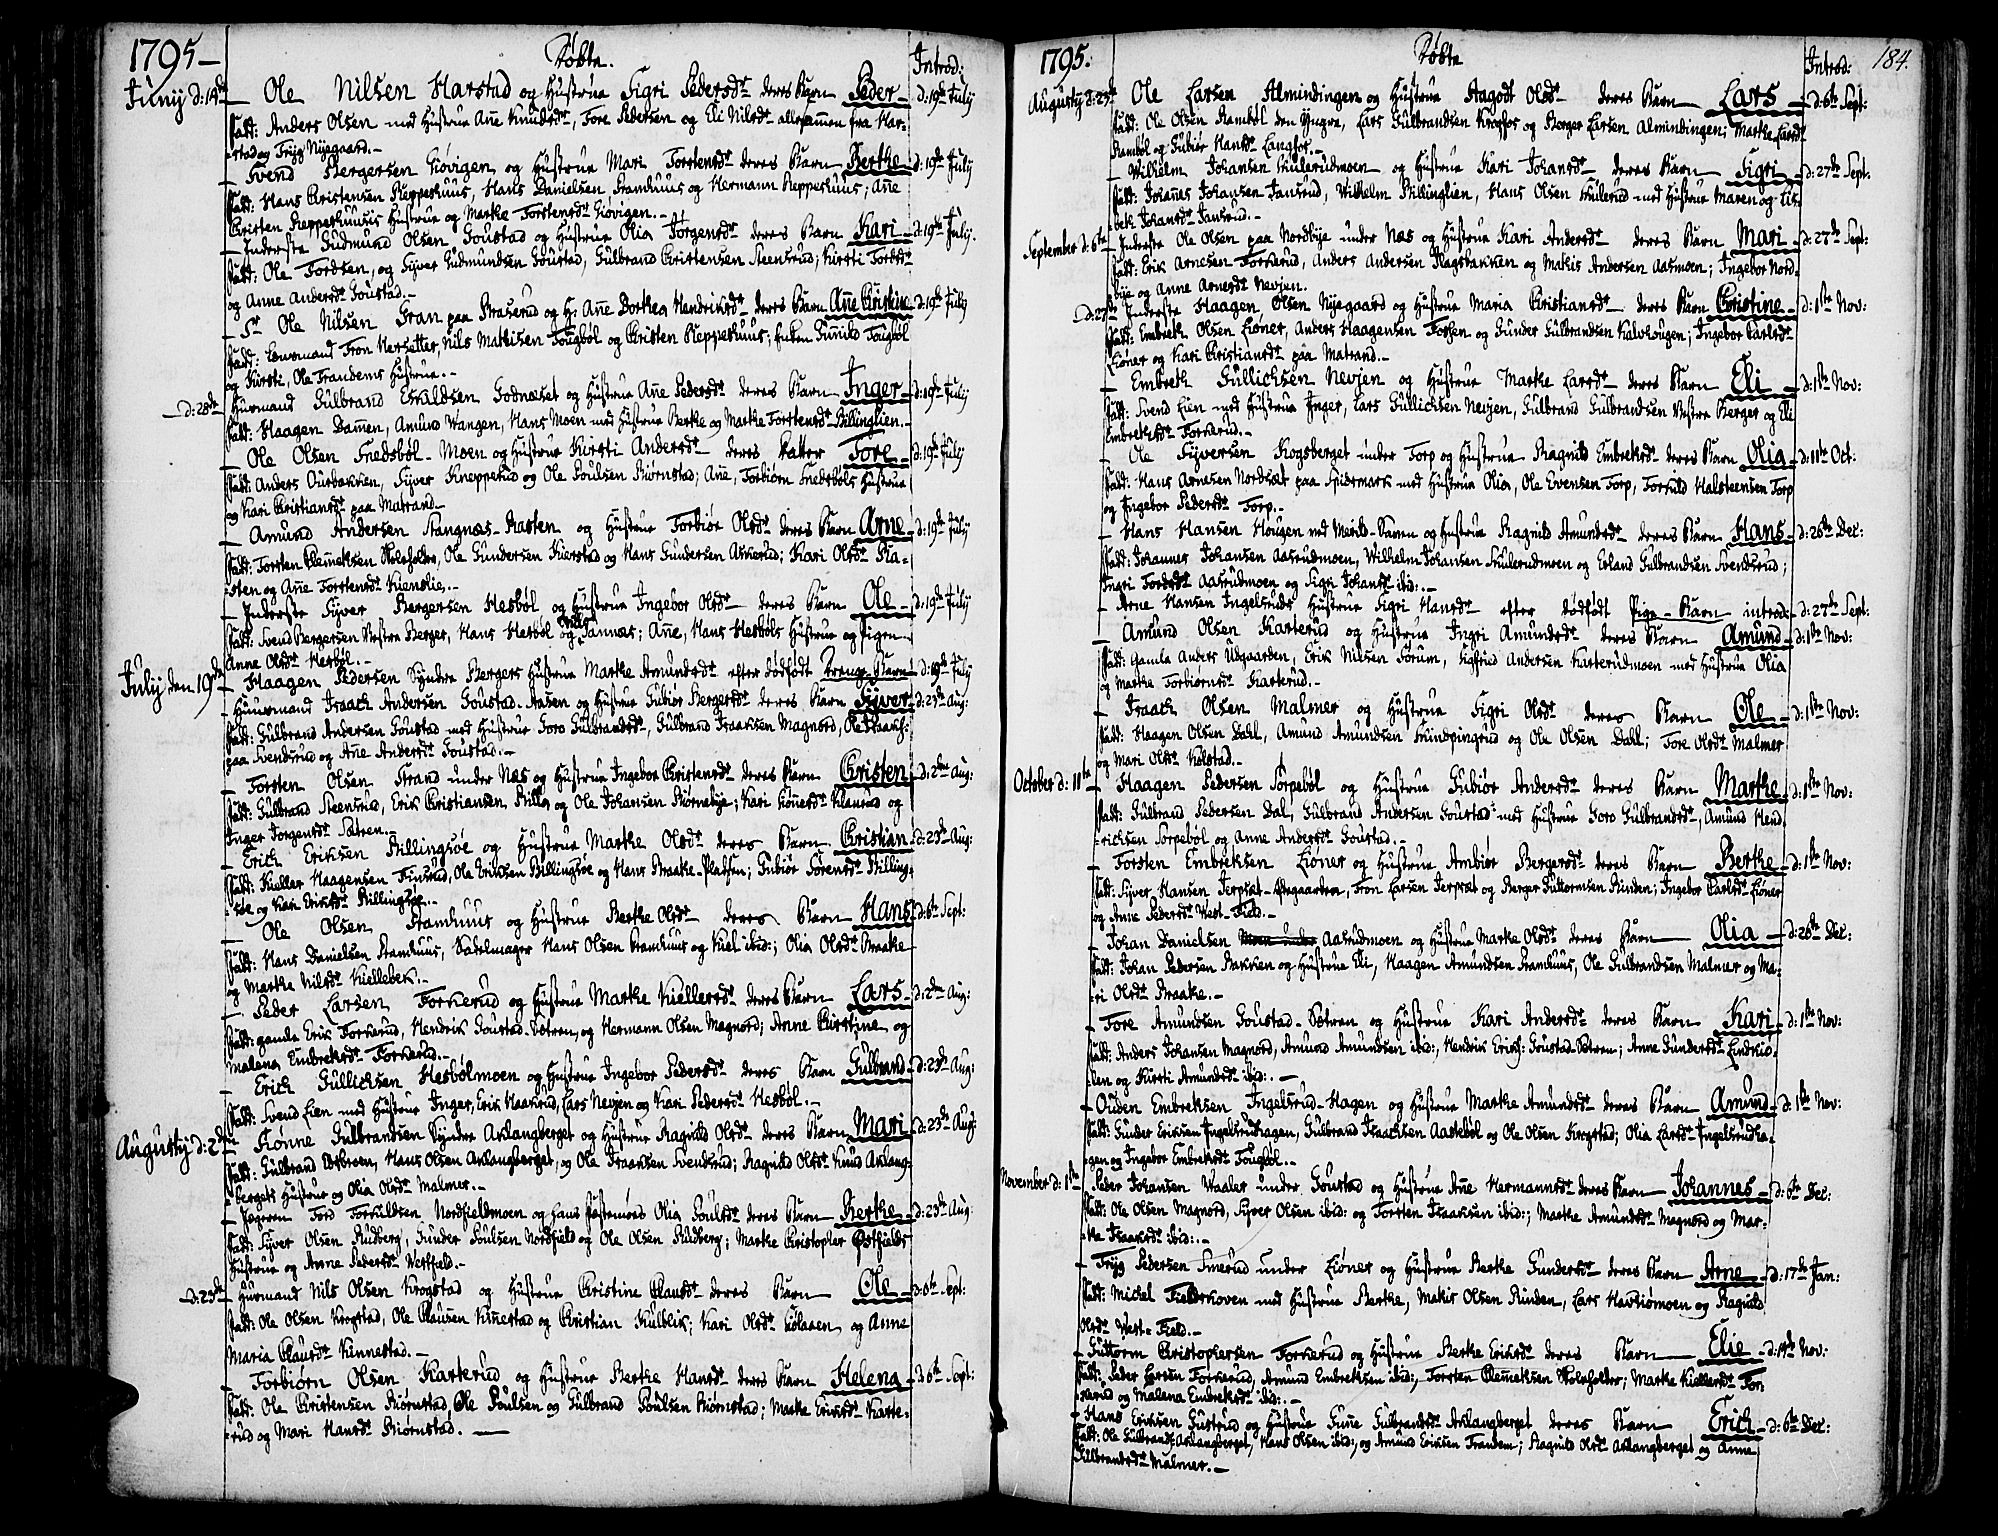 1795 —
Døbte.
Introd:
Juny d: 14de — Ole Nilsen Harstad og Hustrue Sigri Pedersdr deres Barn Peder — d: 19de July
fadd: Anders Olsen med Hustrue Ane Knudsdr, Tore Pedersen og Eli Nilsdr allesammen fra Har-
stad og Tryg Nyegaard. —
— Svend Bergersen Giøvigen og Hustrue Mari Torstensdr deres Barn Berthe — d: 19de July
fadd: Hans Christensen Kleppershuus, Hans Danielsen Framhuus og Hermann Reppershuus; Ane
Christen Reppershuuses Hustrue og Marthe Torstensdr Giøvigen. —
— Inderste Gudmund Olsen Goustad og Hustrue Olia Jørgensdr deres Barn Kari — d: 19de July.
fadd: Ole Tordsen, og Syver Gudmundsen Goustad, Gulbrand Christensen Steensrud; Kirsti Tordsdr
og Anne Andersdr Goustad. —
— Sr Ole Nilsen Gran paa Braserud og H: Ane Dorthea Hendriksdr deres Barn Ane Christine — d: 19de July
fadd: Lensmand Tron Hersetter, Nils Mathisen Tougbøl og Christen Reppershuus; Enken Gunild Tougbøl
og Kirsti, Ole Trandems Hustrue. —
— d: 28de — Huusmand Gulbrand Eskildsen Godnæset og Hustrue Ane Pedersdr deres Barn Inger — d: 19de July
fadd: Haagen Dammen, Amund Wangen, Hans Moen med Hustrue Berthe og Marthe Torstensdr Billinglien. —
— Ole Olsen Snedsbøl-Moen og Hustrue Kirsti Andersdr deres Datter Tore — d: 19de July
fadd: Anders Ourbakken, Syver Knepperud og Ole Poulsen Biørnstad; Ane, Torbiørn Snedsbøls Hustrue
og Kari Christiansdr paa Matrand. —
— Amund Andersen Stangnæs-Rasten og Hustrue Torbiør Olsdr deres Barn Arne — d: 19de July
fadd: Torsten Clemetsen Woldholdt, Ole Gundersen Kierstad og Hans Gundersen Askerud; Kari Olsdr Ra-
sten og Ane Torstensdr Kienslie. —
— Inderste Syver Bergersen Hesbøl og Hustrue Ingebor Olsdr deres Barn Ole — d: 19de July
fadd: Svend Bergersen Vestre Berger, Hans Hesbøl og Nils Sannæs; Ane, Hans Hesbøls Hustrue og Pigen
Anne Olsdr Hesbøl. —
July den 19de — Haagen Pedersen Syndre Bergers Hustrue Marthe Amundsdr efter dødfødt Drenge-Barn — d: 19de July
— Huusmand Isaach Andersen Goustad-Aasen og Hustrue Gubiør Bergersdr deres Barn Syver — d: 23de Aug:
fadd: Gulbrand Andersen Goustad med Hustrue Goro Gulbrandsdr, Gulbrand Isaachsen Magnord, Ole Isaachs:
paa Svensrud og Ane Andersdr Goustad. —
— Torsten Olsen Strand under Næs og Hustrue Ingebor Christensdr deres Barn Christen — d: 2den Aug:
fadd: Gulbrand Steensrud, Erik Christiansen Billa, og Ole Johansen Biørnebye; Kari Hansdr Klanrud og
Inger Jørgensdr Sætren. —
— Erich Eriksen Billingsøe og Hustrue Marthe Olsdr deres Barn Christian — d: 23de Aug:
fadd: Kieller Haagensen Finsrud, Ole Eriksen Billingsøe og Hans Braate-Pladsen; Gubiør Sørensdr Billing-
søe og Kari Eriksdr Billingsøe. —
— Ole Olsen Framhuus og Hustrue Berthe Olsdr deres Barn Hans — d: 6te Sept:
fadd: Hans Danielsen Framhuus, Sadelmager Hans Olsen Framhuus og Kiel ibid:; Olia Olsdr Braate
og Marthe Nilsdr Kiellebek. —
— Peder Larsen Torkerud og Hustrue Marthe Kiellersdr deres Barn Lars — d: 2den Aug:
fadd: gamle Erik Torkerud, Hendrik Goustad-Sætren, og Hermann Olsen Magnord; Anne Kirstine og
Malena Embretsdr Torkerud. —
— Erich Gullichsen Hesbølmoen og Hustrue Ingebor Pedersdr deres Barn Gulbrand — d: 23de Aug:
fadd: Svend Lien med Hustrue Inger, Erik Haakrud, Lars Nevjen og Kari Pedersdr Hesbøl. —
Augusty d: 2den — Rønne Gulbrandsen Syndre Aklangberget og Hustrue Ragnild Olsdr deres Barn Mari — d: 23de Aug:
fadd: Gulbrand Østbroen, Hans Olsen Aklangberget, og Ole Isaachsen Svensrud; Ragnild Olsdr Knud Aklang-
bergets Hustrue og Olia Olsdr Malmer. —
— Jægeren Tord Torkildsen Nordfieldmoen og hans Fæstemøe Olia Poulsdr deres Barn Berthe — d: 23de Aug:
fadd: Syver Olsen Rudberg, Gunder Poulsen Nordfield og Ole Olsen Rudberg; Marthe Christopher Østfields
Hustrue og Anne Pedersdr Westfield. —
— d: 23de — Huusmand Nils Olsen Krogstad og Hustrue Christine Clausdr deres Barn Ole — d: 6te Sept:
fadd: Ole Olsen Krogstad, Ole Clausen Kinnestad og Christian Kulblik; Kari Olsdr Kolaasen og Anne
Maria Clausdr Kinnestad. —
— Torbiørn Olsen Karterud og Hustrue Berthe Hansdr deres Barn Helena — d: 6te Sept:
fadd: Ole Christensen Biørnstad, Ole Poulsen og Gulbrand Poulsen Biørnstad; Marthe Eriksdr Karte-
rud og Mari Hansdr Biørnstad. —
1795.
Døbte
Introd:
184.
Augusty d: 23de — Ole Larsen Almindingen og Hustrue Aagodt Olsdr deres Barn Lars — d: 6te Sept:
fadd: Ole Olsen Rambøl den Yngre, Lars Gulbrandsen Krogfos og Berger Larsen Almindingen; Marthe Larsdr
Rambøl og Gubiør Hansdr Langfos. —
— Wilhelm Johansen Skulerudmoen og Hustrue Kari Johansdr deres Barn Sigri — d: 27de Sept:
fadd: Johanes Johansen Jansrud, Wilhelm Billinglien, Hans Olsen Skulerud med Hustrue Maren og Lis-
beth Johansdr Jansrud. —
September d: 6te — Inderste Ole Olsen paa Nordbye under Næs og Hustrue Kari Andersdr deres Barn Mari — d: 27de Sept:
fadd: Erik Arnesen Torkerud, Anders Andersen Flagsbakken og Mathis Andersen Aasmoen; Ingebor Nord-
bye og Anne Arnesdr Nevjen.
— d: 27de — Inderste Haagen Olsen Nyegaard og Hustrue Maria Christiansdr deres Barn Christine — d: 1ste Nov:
fadd: Embreth Olsen Liøner, Anders Haagensen Fossen og Gunder Gulbrandsen Kalvhougen; Ingebor Carlsdr
Liøner og Kari Christiansdr paa Matrand. —
— Embreth Gullichsen Nevjen og Hustrue Marthe Larsdr deres Barn Eli — d: 1ste Nov:
fadd: Svend Lien med Hustrue Inger, Lars Gullichsen Nevjen, Gulbrand Gulbrandsen Vestre Berger og Eli
Embretsdr Torkerud. —
— Ole Syversen Kogsberget under Torp og Hustrue Ragnild Embretsdr deres Barn Olia — d: 11te Oct:
fadd: Hans Arnesen Nordsæt paa Spidsmark med Hustrue Olia, Ole Evensen Torp, Torkild Halsteensen Torp
og Ingebor Pedersdr Torp. —
— Hans Hansen Hougen ved Merid-Vannen og Hustrue Ragnild Amundsdr deres Barn Hans — d: 26de Dec:
fadd: Johannes Johansen Aasrudmoen, Wilhelm Johansen Skulerudmoen og Erland Gulbrandsen Svendsrud;
Ingri Tordsdr Aasrudmoen og Sigri Johansdr ibid:. —
— Arne Hansen Ingelsruds Hustrue Sigri Hansdr efter dødfødt Pige-Barn introd: — d: 27de Sept:
— Amund Olsen Karterud og Hustrue Ingri Amundsdr deres Barn Amund — d: 1ste Nov:
fadd: Gamle Anders Udgaarden, Erik Nilsen Torum, Sigfried Andersen Karterudmoen med Hustrue Olia
og Marthe Torbiørnsdr Karterud. —
— Isaach Olsen Malmer og Hustrue Sigri Olsdr deres Barn Ole — d: 1ste Nov:
fadd: Haagen Olsen Dahl, Amund Amundsen Kundpingrud og Ole Olsen Dahl; Tore Olsdr Malmer
og Mari Olsdr Kolstad. —
October d: 11te — Haagen Pedersen Sørpebøl og Hustrue Gubiør Andersdr deres Barn Marthe — d: 1ste Nov:
fadd: Gulbrand Pedersen Dal, Gulbrand Andersen Goustad med Hustrue Goro Gulbrandsdr, Amund Hend-
richsen Sørpebøl og Anne Andersdr Goustad. —
— Torsten Embretsen Liøner og Hustrue Ambiør Bergersdr deres Barn Berthe — d: 1ste Nov:
fadd: Syver Hansen Jerpsæt-Øvregaarden, Tron Larsen Jerpsæt og Berger Guttormsen Rinden; Ingebor Carlsdr Liøner
og Anne Pedersdr West-Field. —
— Johan Danielsen Aasrudmoen og Hustrue Marthe Olsdr deres Barn Olia — d: 26de Dec:
fadd: Johan Pedersen Bakken og Hustrue Eli, Haagen Amundsen Framhuus, Ole Gulbrandsen Malmer og Ma-
ri Olsdr Braate. —
— Tore Amundsen Goustad-Sætren og Hustrue Kari Andersdr deres Barn Kari — d: 1ste Nov:
fadd: Anders Johansen Magnord, Amund Amundsen ibid:, Hendrik Eriks: Goustad-Sætren; Anne Gundersdr Lindhio-
len og Kirsti Amundsdr ibid:. —
— Ouden Embretsen Ingelsrud-Hagen og Hustrue Marthe Amundsdr deres Barn Amund — d: 1ste Nov:
fadd: Gunder Eriksen Ingelsrudhagen, Gulbrand Isaachsen Aastebøl og Ole Olsen Krogstad; Olia Larsdr Ingelsrudha-
gen og Ingebor Embretsdr Tougbøl. —
November d: 1ste — Peder Johansen Waaler under Goustad og Hustrue Ane Hermannsdr deres Barn Johannes — d: 6te Dec:
fadd: Ole Olsen Magnord, Syver Olsen ibid: og Torsten Isaachsen ibid:; Marthe Amundsdr Magnord og Mar-
the Isaachsdr ibid:. —
— Tryg Pedersen Smerud under Liøner og Hustrue Berthe Gundersdr deres Barn Arne — d: 17de Jan:
fadd: Michel Fielderhoven med Hustrue Berthe, Mathis Olsen Rinden, Lars Havtiømoen og Ragnild
Olsdr West-Field. —
— Guttorm Christophersen Torkerud og Hustrue Berthe Eriksdr deres Barn Elie — d: 14de Nov:
fadd: Peder Larsen Torkerud, Amund Embretsen ibid:, Torsten Clemetsen Woldholdt; Marthe Kiellersdr Tor-
kerud og Malena Embretsdr ibid:. —
— Hans Eriksen Gustrud og Hustrue Gune Gulbrandsdr Aklangberget deres Barn Erich — d: 6te Dec:
fadd: Ole Gulbrands: Aklangberget, Hans Olsen ibid:, og Amund Eriksen Trandem; Ragnild Olsdr Aklangberget og Anne
Gulbrandsdr Malmer. —